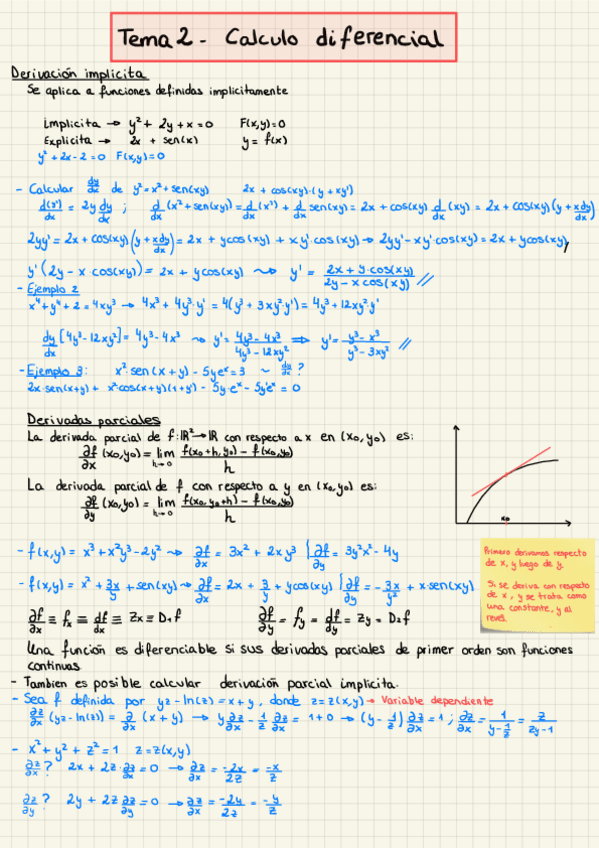 Tema 2 - Calculo diferencial
Derivación implicita
Se aplica a funciones definidas implicitamente
Implicita → y² + 2y + x = 0 F(x,y)=0
Explicita → 2x + sen(x) y = f(x)
y² + 2x - 2 = 0 F(x,y)=0
- Calcular dy/dx de y² = x² + sen(xy) 2x + cos(xy)·(y + xy')
d(y²)/dx = 2y dy/dx ; d/dx (x² + sen(xy)) = d/dx (x²) + d/dx sen(xy) = 2x + cos(xy) d/dx (xy) = 2x + cos(xy)(y + x dy/dx)
2yy' = 2x + cos(xy)(y + x dy/dx) = 2x + y cos(xy) + x y'·cos(xy) → 2yy' - xy'·cos(xy) = 2x + y cos(xy)
y'(2y - x cos(xy)) = 2x + y cos(xy) ⇝ y' = (2x + y·cos(xy))/(2y - x cos(xy)) //
- Ejemplo 2
x⁴ + y⁴ + 2 = 4xy³ → 4x³ + 4y³·y' = 4(y³ + 3xy²·y') = 4y³ + 12xy²·y'
dy/dx [4y³ - 12xy²] = 4y³ - 4x³ ⇝ y' = (4y³ - 4x³)/(4y³ - 12xy²) ⇒ y' = (y³ - x³)/(y³ - 3xy²) //
- Ejemplo 3: x²·sen(x + y) - 5yeˣ = 3 ~ dy/dx ?
2x·sen(x+y) + x²cos(x+y)(1+y') - 5y·eˣ - 5y'eˣ = 0
Derivadas parciales
La derivada parcial de f: ℝ² → ℝ con respecto a x en (x₀, y₀) es:
∂f/∂x (x₀, y₀) = lim h→0 (f(x₀+h, y₀) - f(x₀, y₀))/h
La derivada parcial de f con respecto a y en (x₀, y₀) es:
∂f/∂y (x₀, y₀) = lim h→0 (f(x₀, y₀+h) - f(x₀, y₀))/h
x₀
- f(x,y) = x³ + x²y³ - 2y² ⇝ ∂f/∂x = 3x² + 2xy³ { ∂f/∂y = 3y²x² - 4y
- f(x,y) = x² + 3x/y + sen(xy) ⇝ ∂f/∂x = 2x + 3/y + y cos(xy) { ∂f/∂y = -3x/y² + x·sen(xy)
Primero derivamos respecto
de x, y luego de y.
Si se deriva con respecto
de x, y se trata como
una constante, y al
revés.
∂f/∂x ≡ fₓ ≡ df/dx ≡ Zx ≡ D₁f ∂f/∂y = fy = df/dy = Zy = D₂f
Una función es diferenciable si sus derivadas parciales de primer orden son funciones
continuas
- Tambien es posible calcular derivación parcial implicita.
- Sea f definida por yz - ln(z) = x + y, donde z = z(x,y) → Variable dependiente
∂z/∂x (yz - ln(z)) = ∂/∂x (x + y) → y ∂z/∂x - 1/z ∂z/∂x = 1 + 0 → (y - 1/z) ∂z/∂x = 1 ; ∂z/∂x = 1/(y - 1/z) = z/(zy - 1)
- x² + y² + z² = 1 z = z(x,y)
∂z/∂x ? 2x + 2z·∂z/∂x = 0 → ∂z/∂x = -2x/2z = -x/z
∂z/∂y ? 2y + 2z ∂z/∂y = 0 → ∂z/∂x = -2y/2z = -y/z